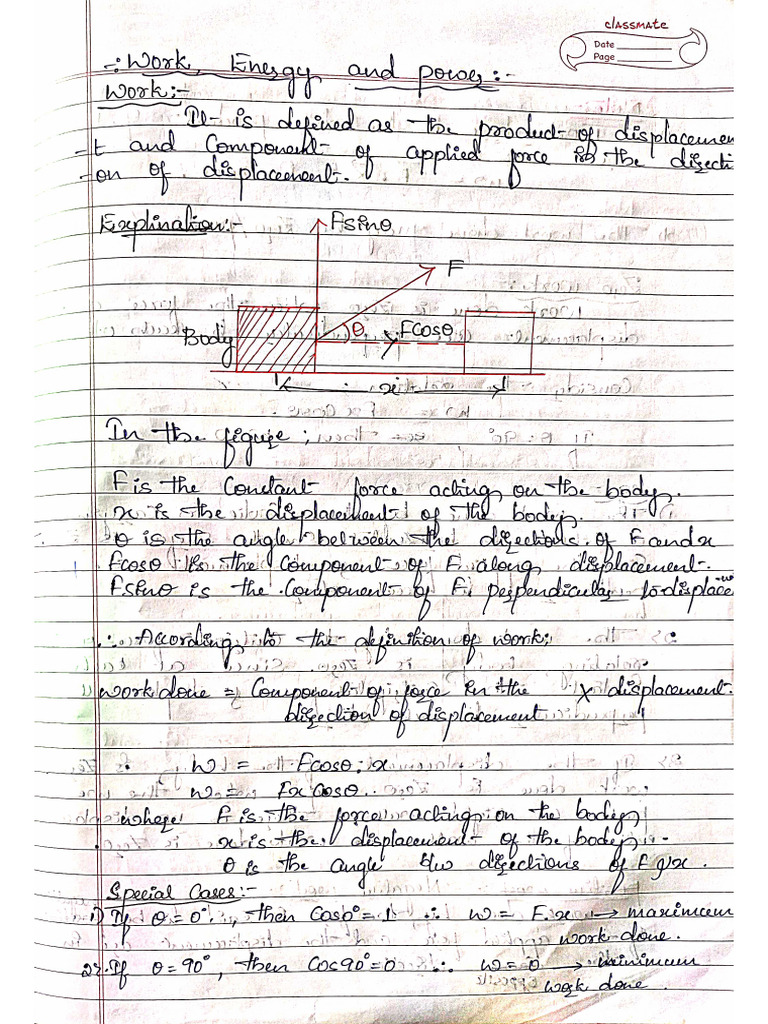 classmate
Date
Page
-: Work, Energy and power:-
Work:-
It is defined as the product of displacemen
-t and Component of applied force in the directi
-on of displacement.
Explination:-
Fsinθ
F
θ
Fcosθ
Body
x
In the figure;
F is the Constant force acting on the body.
x is the displacement of the body.
θ is the angle between the directions of F and x
Fcosθ is the Component of F along displacement.
Fsinθ is the Component of F perpendicular to displace
∴ According to the definition of work;
work done = Component of force in the × displacement.
direction of displacement
W = Fcosθ . x
W = Fx Cosθ.
where F is the force acting on the body
x is the displacement of the body
θ is the angle b/w directions of F & x.
Special Cases:-
1) If θ = 0°, then Cos0° = 1 ∴ W = F.x → maximum
work done.
2) If θ = 90°, then Cos90° = 0 ∴ W = 0 → minimum
work done.